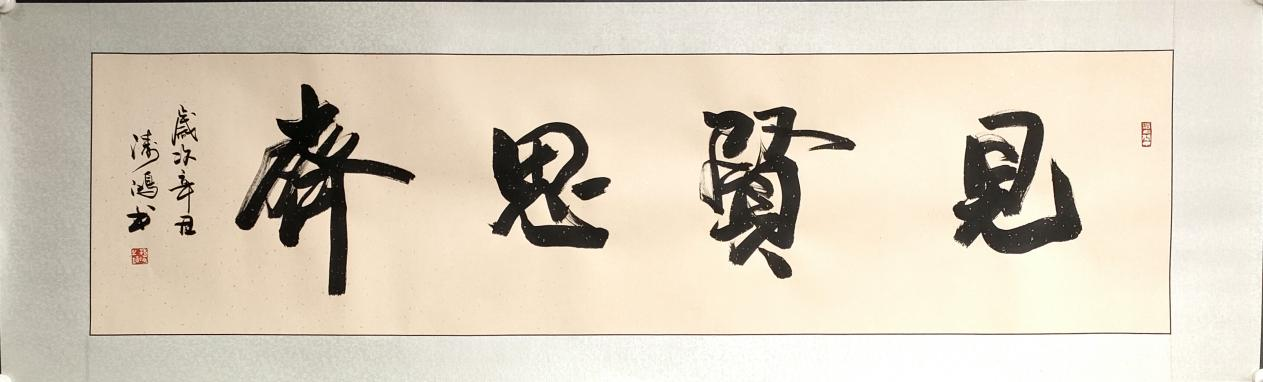 見賢思齊
歲次辛丑
涛鴻书